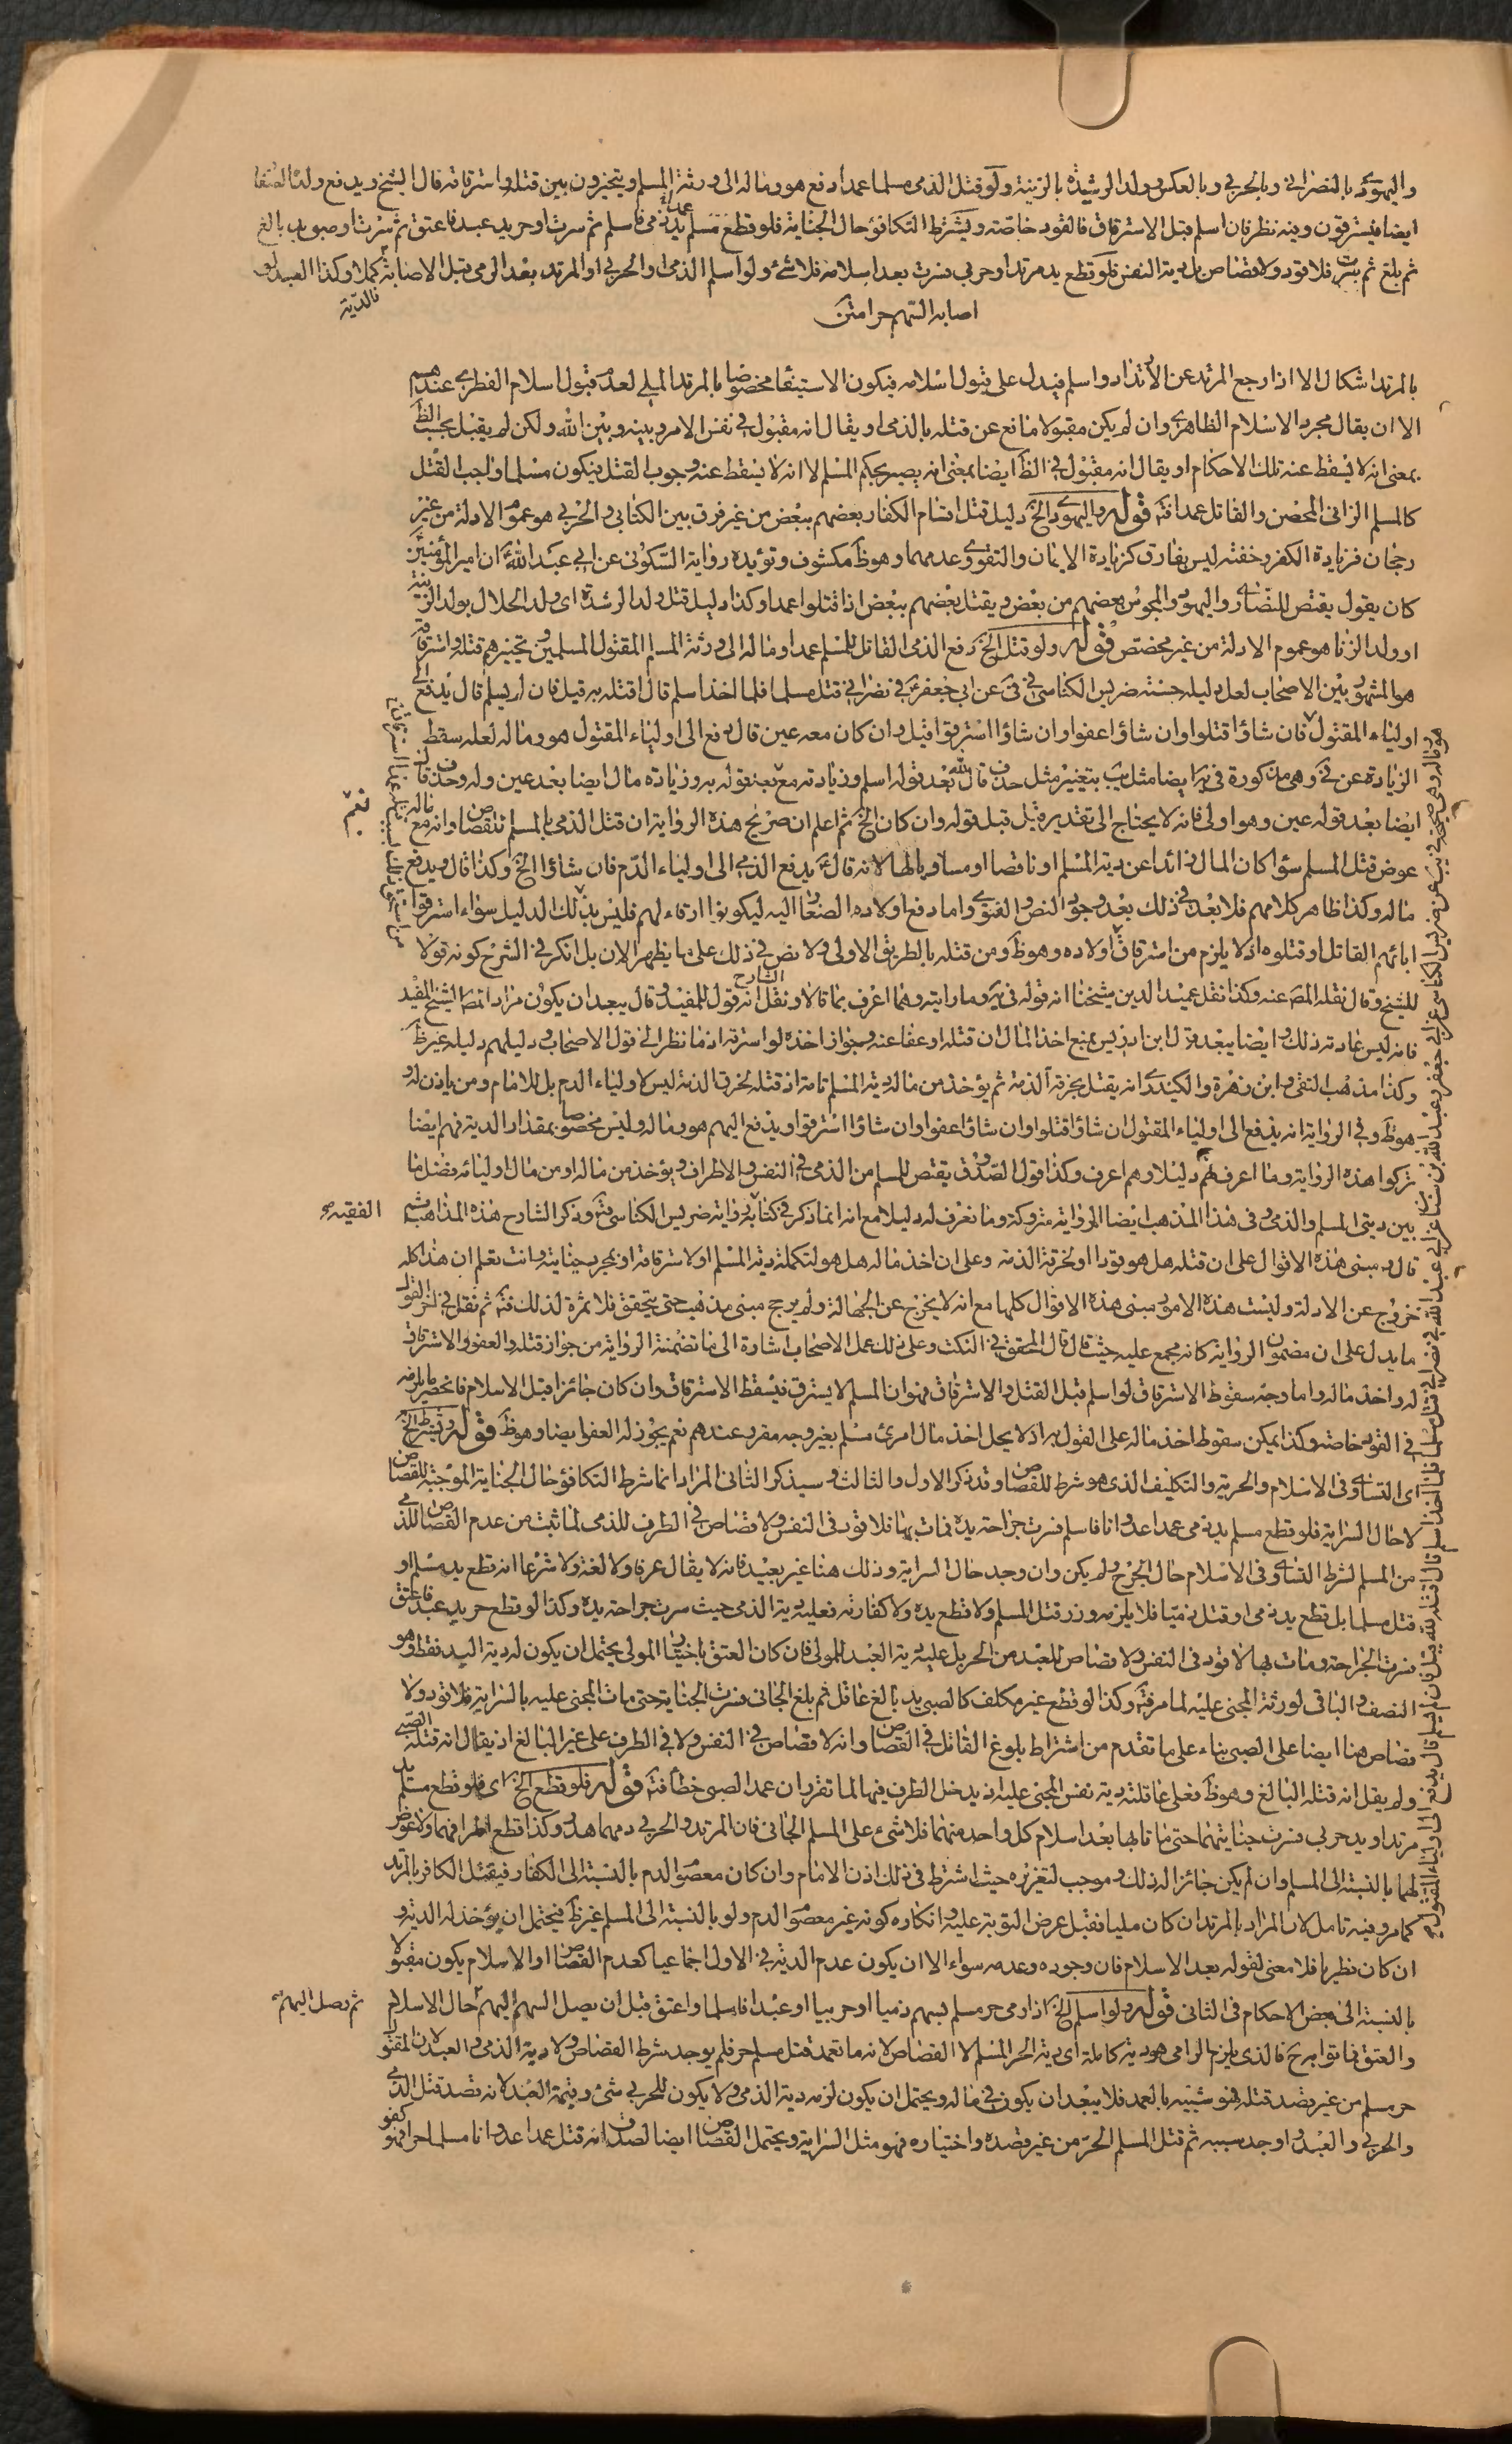 واليهودي بالنصراني وبالحربي وبالعكس وولد الرشيدة بالزنية ولو قتل الذمي مسلما عمدا دفع هو وماله الى ورثة المسلم ويتخيرون بين قتله واسترقاقه قال الشيخ ويدفع ولده الصغار
ايضا فيسترقون وفيه نظر فان اسلم قبل الاسترقاق فالقود خاصة ويشترط التكافؤ حال الجناية فلو قطع مسلم يد ذمي عمدا فاسلم ثم سرت او حر يد عبد فاعتق ثم سرت او صبي يد بالغ
ثم بلغ ثم سرت فلا قود ولا قصاص بل دية النفس فلو قطع يد مرتد او حربي فسرت بعد اسلامه فلا شئ ولو اسلم الذمي او الحربي او المرتد بعد الرمي قبل الاصابة كملا وكذا العبد لو
اصابه السهم حرا متن
فالدية
بالمرتد اشكال الا اذا رجع المرتد عن الارتداد واسلم فيدل على قبول اسلامه فيكون الاستيفا مخصوصا بالمرتد الملي لعدم قبول اسلام الفطري عندهم
الا ان يقال مجرد الاسلام الظاهري وان لم يكن مقبولا مانع عن قتله بالذمي او يقال انه مقبول في نفس الامر وبينه وبين الله ولكن لم يقبل بحسب الظ
بمعنى انه لا يسقط عنه تلك الاحكام او يقال انه مقبول في الظ ايضا بمعنى انه يصير بحكم المسلم الا انه لا يسقط عنه وجوب القتل فيكون مسلما واجب القتل
كالمسلم الزاني المحصن والقاتل عمدا فت قوله واليهودي الخ دليل قتل اقسام الكفار بعضهم ببعض من غير فرق بين الكتابي والحربي هو عموم الادلة من غير
رجحان فزيادة الكفر وخفته ليس بفارق كزيادة الايمان والتقوى وعدمهما وهو ظ مكشوف وتؤيده رواية السكوني عن ابي عبد الله ان امير المؤمنين
كان يقول يقتص للنصارى واليهود والمجوس بعضهم من بعض ويقتل بعضهم ببعض اذا قتلوا عمدا وكذا دليل قتل ولد الرشدة اي ولد الحلال بولد الزنية
او ولد الزنا هو عموم الادلة من غير مخصص قوله ولو قتل الخ دفع الذمي القاتل للمسلم عمدا وماله الى ورثة المسلم المقتول المسلمين وتخييرهم قتله واسترقاقه
هو المشهور بين الاصحاب لعل دليله حسنة ضريس الكناسي في في عن ابي جعفر في نصراني قتل مسلما فلما اخذ اسلم قال اقتله به قيل فان لم يسلم قال يدفع الى
اولياء المقتول فان شاؤا قتلوا وان شاؤا عفوا وان شاؤا استرقوا قيل وان كان معه عين قال دفع الى اولياء المقتول هو وماله لعله سقط
الزيادة عن في وهي مذكورة في يه ايضا مثل يب بتغيير مثل حذف قال بعد قوله اسلم وزيادته مع بعد قوله به وزيادة مال ايضا بعد عين وله وحذف قال
ايضا بعد قوله عين وهو اولى فانه لا يحتاج الى تقدير قيل قبل قوله وان كان الخ ثم اعلم ان صريح هذه الرواية ان قتل الذمي بالمسلم للقصاص وانه مع ماله
عوض قتل المسلم سواء كان المال زائدا عن دية المسلم او ناقصا او مساويا لها لانه قال يدفع الذمي الى اولياء الدم فان شاؤا الخ وكذا قال ويدفع
ماله وكذا ظاهر كلامهم فلا بعد في ذلك بعد وجود النص والفتوى واما دفع اولاده الصغار اليه ليكونوا ارقاء لهم فليس بذلك الدليل سواء استرقوا
ابائهم القاتل او قتلوه اذ لا يلزم من استرقاق اولاده وهو ظ ومن قتله بالطريق الاولى ولا نص في ذلك على ما يظهر الان بل انكر في الشرح كونه قولا
للشيخ وقال نقله المص عنه وكذا نقل عميد الدين شيخنا انه قوله في يه وما رايته وهما اعرف بما قالا ونقل الشارح انه قول للمفيد وقال يبعد ان يكون مراد المص الشيخ المفيد
فانه ليس عادته ذلك وايضا يبعد قول ابن ادريس بمنع اخذ المال ان قتله او عفا عنه وجواز اخذه لو استرقه اذ ما نظر الى قول الاصحاب ودليلهم دليله غير ظ
وكذا مذهب التقي وابن زهرة والكيدري انه يقتل بخرقه الذمة ثم يؤخذ من ماله دية المسلم تامة اذ قتله لخرق الذمة ليس لاولياء الدم بل للامام ومن ياذن له
هو ظ وفي الرواية انه يدفع الى اولياء المقتول ان شاؤا قتلوا وان شاؤا عفوا وان شاؤا استرقوا ويدفع اليهم هو وماله وليس مخصوصا بمقدار الدية فهم ايضا
تركوا هذه الرواية وما اعرف لهم دليلا وهم اعرف وكذا قول الصدوق يقتص للمسلم من الذمي في النفس والاطراف ويؤخذ من ماله او من مال اوليائه فضل ما
بين ديتي المسلم والذمي وفي هذا المذهب ايضا الرواية متروكة وما نعرف له دليلا مع انه انما ذكر في كتابه رواية ضريس الكناسي فت وذكر الشارح هذه المذاهب ثم
الفقيه
قال مبنى هذه الاقوال على ان قتله هل هو قودا او لخرقه الذمة وعلى ان اخذ ماله هل هو لتكملة دية المسلم او لاسترقاقه او بمجرد جنايته وانت تعلم ان هذا كله
خروج عن الادلة وليست هذه الامور مبنى هذه الاقوال كلها مع انه لا يخرج عن الجهالة ولم يرجح مبنى مذهب حتى يتحقق فلا ثمرة لذلك فت ثم نقل في اخر القول
ما يدل على ان مضمون الرواية كانه مجمع عليه حيث قال قال المحقق في النكت وعلى ذلك عمل الاصحاب اشارة الى ما تضمنته الرواية من جواز قتله والعفو والاسترقاق
له واخذ ماله واما وجه سقوط الاسترقاق لو اسلم قبل القتل والاسترقاق فهو ان المسلم لا يسترق فيسقط الاسترقاق وان كان جائزا قبل الاسلام فانحصر ما يلزمه
في القود خاصة وكذا يمكن سقوط اخذ ماله على القول به اذ لا يحل اخذ مال امرئ مسلم بغير وجه مقرر عندهم نعم يجوز له العفو ايضا وهو ظ قوله ويشترط الخ
اي التساوي في الاسلام والحرية والتكليف الذي هو شرط للقصاص وقد ذكر الاول والثالث وسيذكر الثاني المراد انما شرط التكافؤ حال الجناية الموجبة للقصاص
لا حال السراية فلو قطع مسلم يد ذمي عمدا عدوانا فاسلم فسرت جراحة يده فمات بها فلا قود في النفس ولا قصاص في الطرف للذمي لما ثبت من عدم القصاص للذمي
من المسلم لشرط التساوي في الاسلام حال الجرح ولم يكن وان وجد حال السراية وذلك هنا غير بعيد فانه لا يقال عرفا ولا لغة ولا شرعا انه قطع يد مسلم او
قتل مسلما بل قطع يد ذمي او قتل ذميا فلا يلزمه وزر قتل المسلم ولا قطع يده ولا كفارته فعليه دية الذمي حيث سرت جراحة يده وكذا لو قطع حر يد عبد فاعتق
فسرت الجراحة ومات بها لا قود في النفس ولا قصاص للعبد من الحر بل عليه دية العبد للمولى فان كان العتق باختيار المولى يحتمل ان يكون له دية اليد فقط وهو
النصف والباقي لورثة المجني عليه لما مر فت وكذا لو قطع غير مكلف كالصبي يد بالغ عاقل ثم بلغ الجاني فسرت الجناية حتى مات المجني عليه بالسراية فلا قود ولا
قصاص هنا ايضا على الصبي بناء على ما تقدم من اشتراط بلوغ القاتل في القصاص وانه لا قصاص في النفس ولا في الطرف على غير البالغ اذ يقال انه قتله الصبي
ولم يقل انه قتله البالغ وهو ظ فعلى عاقلته دية نفس المجني عليه اذ يدخل الطرف فيها لما تقرر ان عمد الصبي خطأ فت قوله فلو قطع الخ اي فلو قطع مسلم يد
مرتد او يد حربي فسرت جنايتهما حتى ماتا بها بعد اسلام كل واحد منهما فلا شئ على المسلم الجاني فان المرتد والحربي دمهما هدر وكذا قطع اطرافهما ولا عوض
لهما بالنسبة الى المسلم وان لم يكن جائزا له ذلك وموجب لتعزيره حيث اشترط في ذلك اذن الامام وان كان معصوم الدم بالنسبة الى الكفار فيقتل الكافر بالمرتد
كما مر وفيه تامل لان المراد بالمرتد ان كان مليا فقبل عرض التوبة عليه وانكاره كونه غير معصوم الدم ولو بالنسبة الى المسلم غير ظ فيحتمل ان يؤخذ له الدية و
ان كان فطريا فلا معنى لقوله بعد الاسلام فان وجوده وعدمه سواء الا ان يكون عدم الدية في الاول اجماعيا كعدم القصاص او الاسلام يكون مقبولا
بالنسبة الى بعض الاحكام في الثاني قوله ولو اسلم الخ اذا رمى حر مسلم بسهم ذميا او حربيا او عبدا فاسلما واعتق قبل ان يصل السهم اليهم حال الاسلام
ثم وصل اليهم
والعتق فماتوا به فالذي يلزم الرامي هو دية كاملة اي دية الحر المسلم لا القصاص لانه ما تعمد قتل مسلم حر فلم يوجد شرط القصاص ولا دية الذمي والعبد لان المقتول
حر مسلم من غير قصد قتله فهو شبيه بالعمد فلا يبعد ان يكون في ماله ويحتمل ان يكون لزمه دية الذمي ولا يكون للحربي شئ وقيمة العبد لانه قصد قتل الذمي
والحربي والعبد واوجد سببه ثم قتل المسلم الحر من غير قصده واختياره فهو مثل السراية ويحتمل القصاص ايضا لصدق انه قتل عمدا عدوانا مسلما حرا فهو كفو